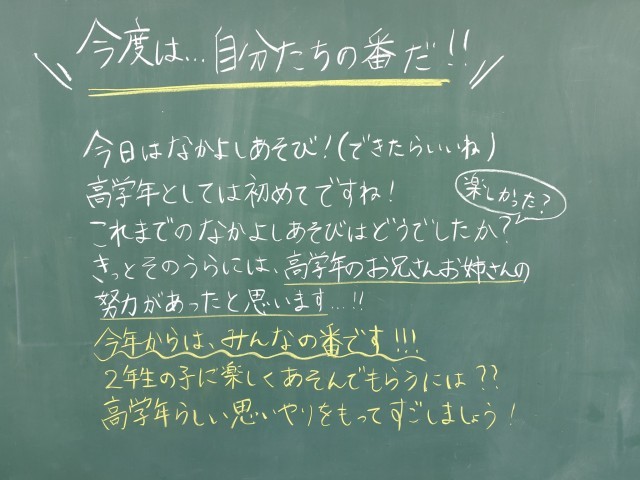 今度は…自分たちの番だ!!
今日はなかよしあそび!(できたらいいね)
高学年としては初めてですね!
楽しかった?
これまでのなかよしあそびはどうでしたか?
きっとそのうらには、高学年のお兄さんお姉さんの
努力があったと思います…!!
今年からは、みんなの番です!!!
2年生の子に楽しくあそんでもらうには??
高学年らしい思いやりをもってすごしましょう!